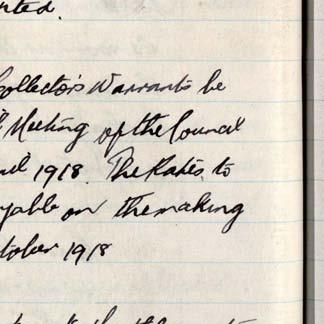 nted.
Collector's Warrants be
Meeting of the Council
1918. The Rates to
yable on the making
tober 1918